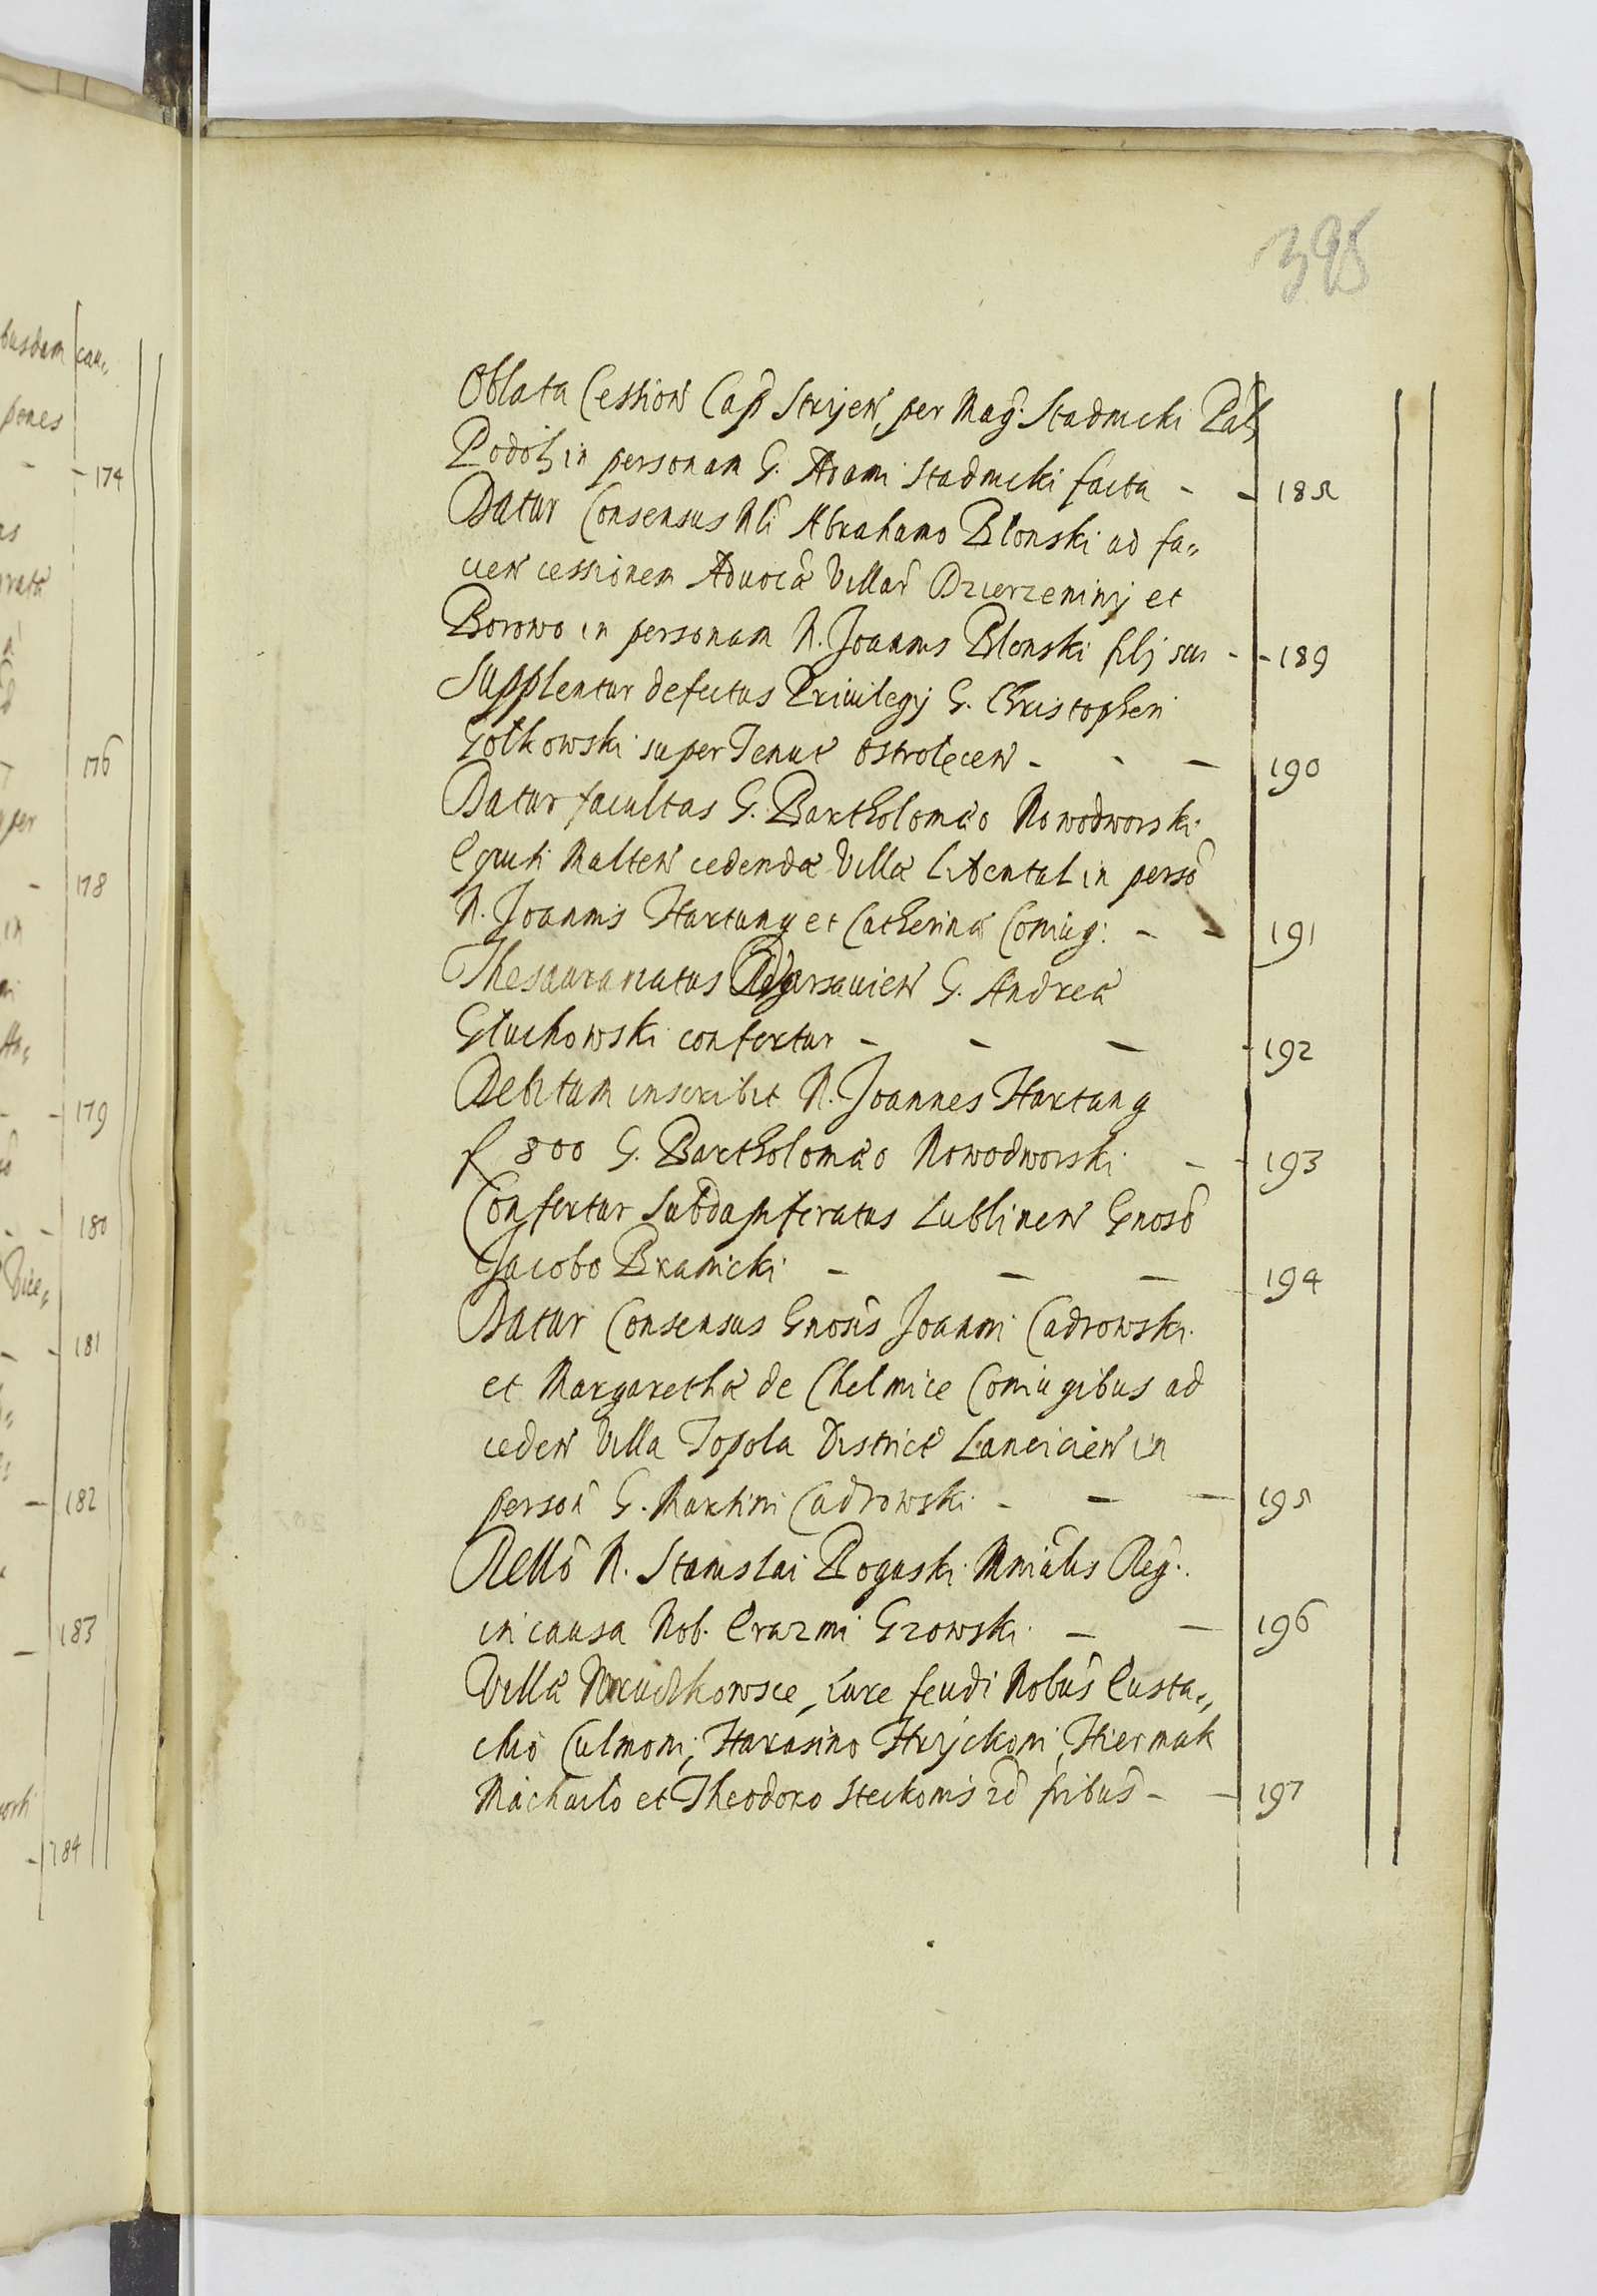 busdam cau-
pones
174
176
per
178
in
179
180
Vice-
181
182
183
184
395
Oblata Cession Cap Stryen, per Mag: Stadnicki Pal
Podol in personam G. Adami Stadnicki facta - - 185
Datur Consensus Nli Abrahamo Blonski ad fa-
cien cessionem Aduocā Villar Dzierzeninij et
Borowo in personam N. Joannis Blonski filj sui - - 189
Supplentur defectus Priuilegij G. Christopheri
Golkowski super Tenut Ostrolecen - - - 190
Datur facultas G. Bartholomæo Nowodworski
Equiti Malten cedendæ Villæ Libental in perso
N. Joannis Hartung et Catherinæ Coniug: - - 191
Thesauraruatus Warsauien G. Andreæ
Gluchowski confertur - - - 192
Debitum inscribit N. Joannes Hartung
f 800 G. Bartholomæo Nowodworski - - 193
Confertur Subdapiferatus Lublinen Gnoso
Jacobo Branicki - - - 194
Datur Consensus Gnosis Joanni Cadrowski
et Margarethæ de Chelmice Coniugibus ad
ceden Villa Topola District Lancicien in
person G. Martini Cadrowski - - - 195
Rello N. Stanislai Rogaski Mnialis Reg:
in causa Nob. Erazmi Gzowski - - 196
Villa iure feudi Nobus Eusta-
chio Culmoni, Harasino Hryckoni, Hiermak
Michailo et Theodoro Steckonis fribus - - 197